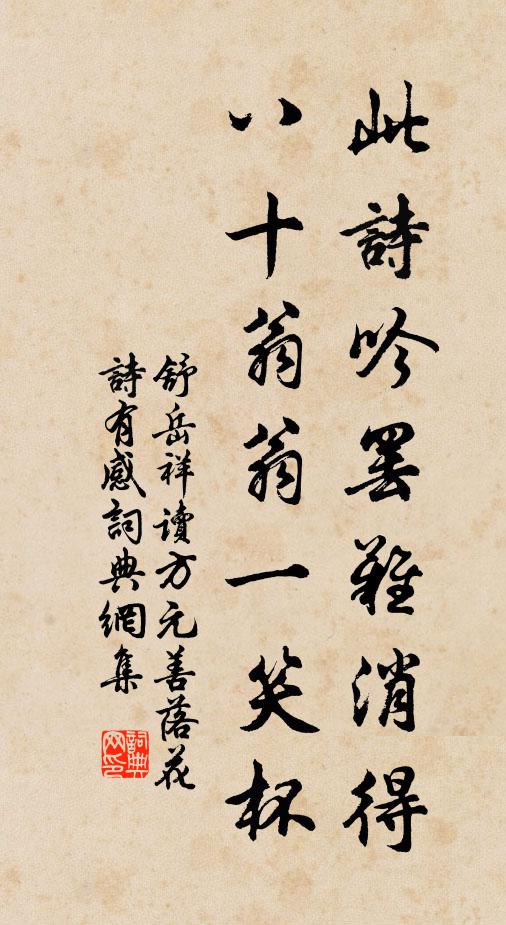 此詩吟罷難消得
八十翁翁一笑杯
舒岳祥讀方元善落花
詩有感詞典網集
詞典
网印